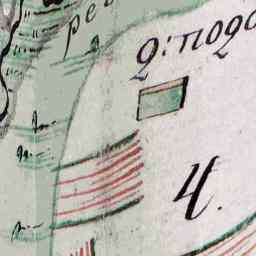 ре
2: подо
4.